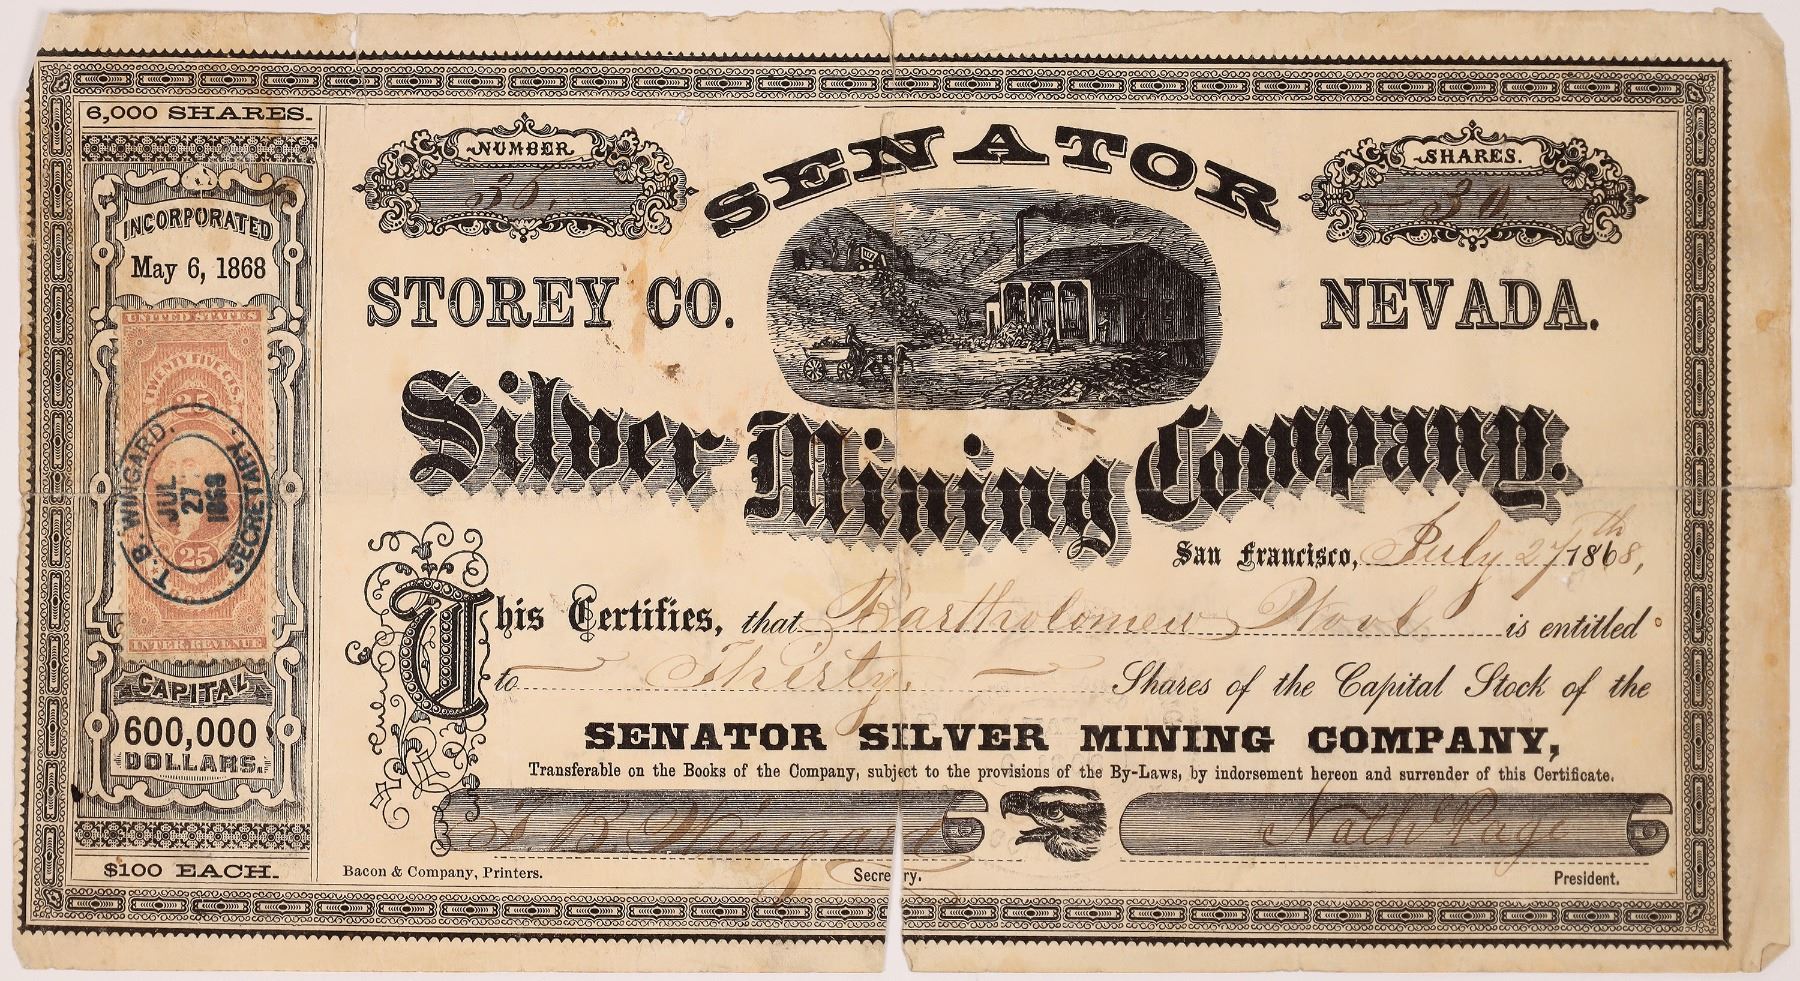 6,000 SHARES.
INCORPORATED
May 6, 1868
UNITED STATES
TWENTY FIVE CTS.
25
T. B. WINGARD,
JUL
27
1868
SECRETARY.
25
INTER. REVENUE
CAPITAL
600,000
DOLLARS.
$100 EACH.
NUMBER
36.
SENATOR
SHARES.
30
STOREY CO.
NEVADA.
Silver Mining Company.
San Francisco, July 27th 1868,
This Certifies, that Bartholomew Wool is entitled
to Thirty Shares of the Capital Stock of the
SENATOR SILVER MINING COMPANY,
Transferable on the Books of the Company, subject to the provisions of the By-Laws, by indorsement hereon and surrender of this Certificate.
T. B. Wingard
Nath Page
Bacon & Company, Printers.
Secre ry.
President.